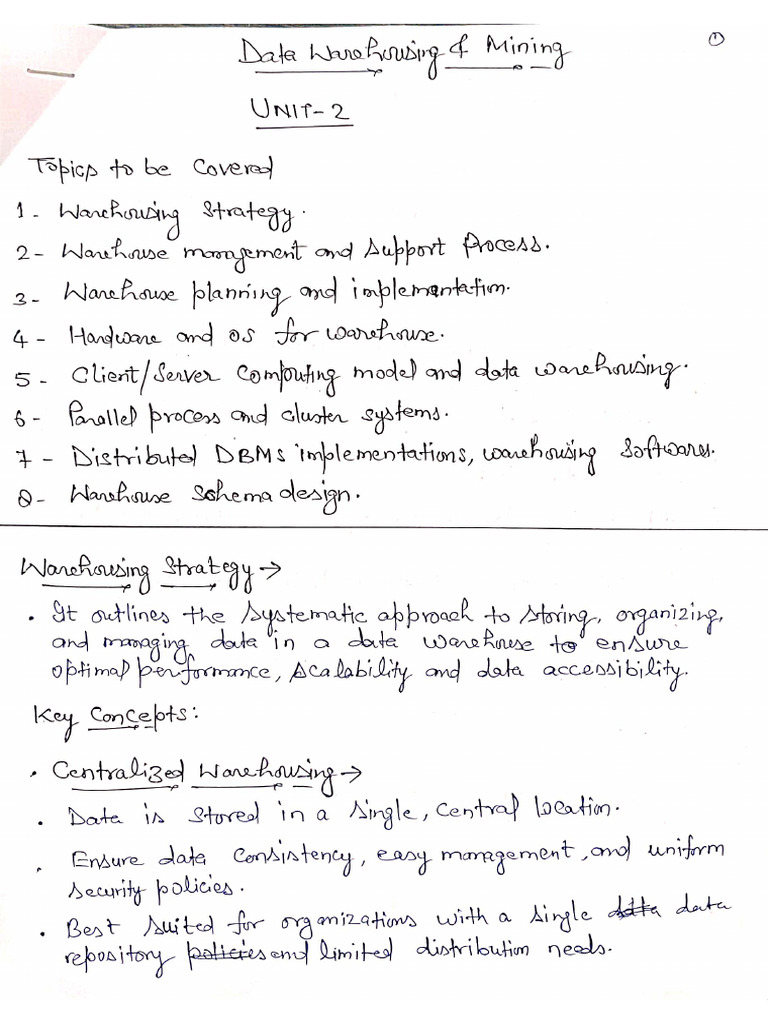 ①
Data Warehousing & Mining
UNIT-2
Topics to be Covered
1 - Warehousing Strategy.
2 - Warehouse management and support Process.
3 - Warehouse planning and implementation.
4 - Hardware and OS for warehouse.
5 - Client/Server Computing model and data warehousing.
6 - Parallel process and cluster systems.
7 - Distributed DBMS implementations, warehousing Softwares.
8 - Warehouse Schema design.
Warehousing Strategy →
• It outlines the systematic approach to storing, organizing,
and managing data in a data warehouse to ensure
optimal performance, scalability and data accessibility.
Key Concepts:
• Centralized Warehousing →
• Data is stored in a single, central location.
• Ensure data consistency, easy management, and uniform
security policies.
• Best suited for organizations with a single data data
repository policies and limited distribution needs.